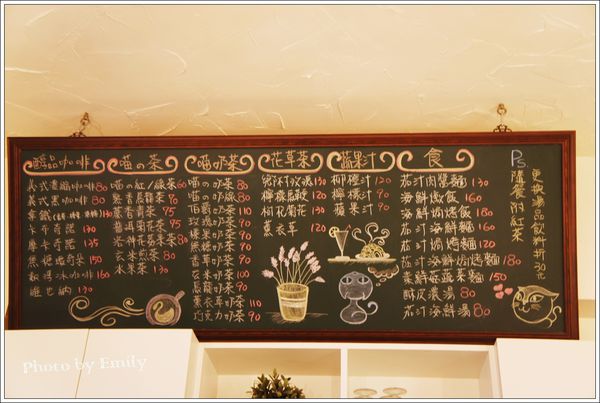 醇品咖啡
美式濃縮咖啡 80
美式黑咖啡 80
卡布奇諾
摩卡奇諾 135
焦糖瑪奇朵 150
冰咖啡 160
維也納 130
喵の茶
喵の紅/綠茶 60
紫香烏龍茶 90
薰香茶 95
普洱菊花茶 95
洛神花果茶
玄米煎茶 80
水果茶 130
喵の奶茶
喵の奶茶 80
喵の奶綠 80
伯爵奶茶 110
玫瑰奶茶
榛果奶茶 90
焦糖奶茶 90
香草奶茶 90
玄米奶茶 80
烏龍奶茶 80
薰衣草奶茶 110
巧克力奶茶 90
花草茶
紫羅玫瑰 130
檸檬馬鞭草 120
柑橘菊花 130
薰衣草 120
鮮果汁
柳橙汁 120
檸檬汁 90
蘋果汁 90
食
茄汁肉醬麵 130
海鮮燉飯 160
海鮮焗烤飯 180
茄汁焗烤飯 160
茄汁焗烤麵 120
茄汁海鮮焗烤麵 180
素鮮菇蔬菜麵 150
酥皮濃湯 80
茄汁海鮮湯 80
Ps.
隨餐附紅茶
更換湯品飲料折30元
Photo by Emily